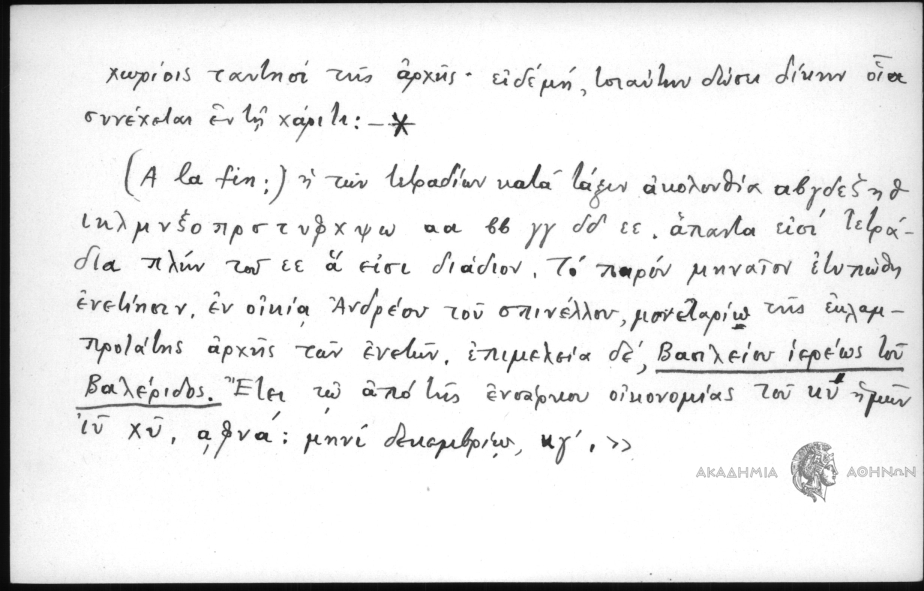 χωρίοις ταυτησί τῆς ἀρχῆς· εἰδέμή, τοιαύτην δώσει δίκην οἵα
συνέχεται ἐν τῇ χάριτι: —*
(A la fin:) ἡ τῶν τετραδίων κατά τάξιν ἀκολουθία αβγδεζηθ
ικλμνξοπρστυφχψω αα ββ γγ δδ εε. ἅπαντα εἰσί τετρά-
δια πλήν τοῦ εε ὅ εἰσι διάδιον. Τό παρόν μηναῖον ἐτυπώθη
ἐνετίησιν, ἐν οἰκίᾳ Ἀνδρέου τοῦ σπινέλλου, μονεταρίῳ τῆς ἐκλαμ-
προτάτης ἀρχῆς τῶν ἐνετῶν. ἐπιμελείᾳ δέ, Βασιλείου ἱερέως τοῦ
Βαλέριδος. Ἔτει τῷ ἀπό τῆς ἐνσάρκου οἰκονομίας τοῦ κυ ἡμῶν
ἰῦ χῦ, αφνά: μηνί δεκεμβρίῳ, κγ΄. >>
ΑΚΑΔΗΜΙΑ ΑΘΗΝΩΝ